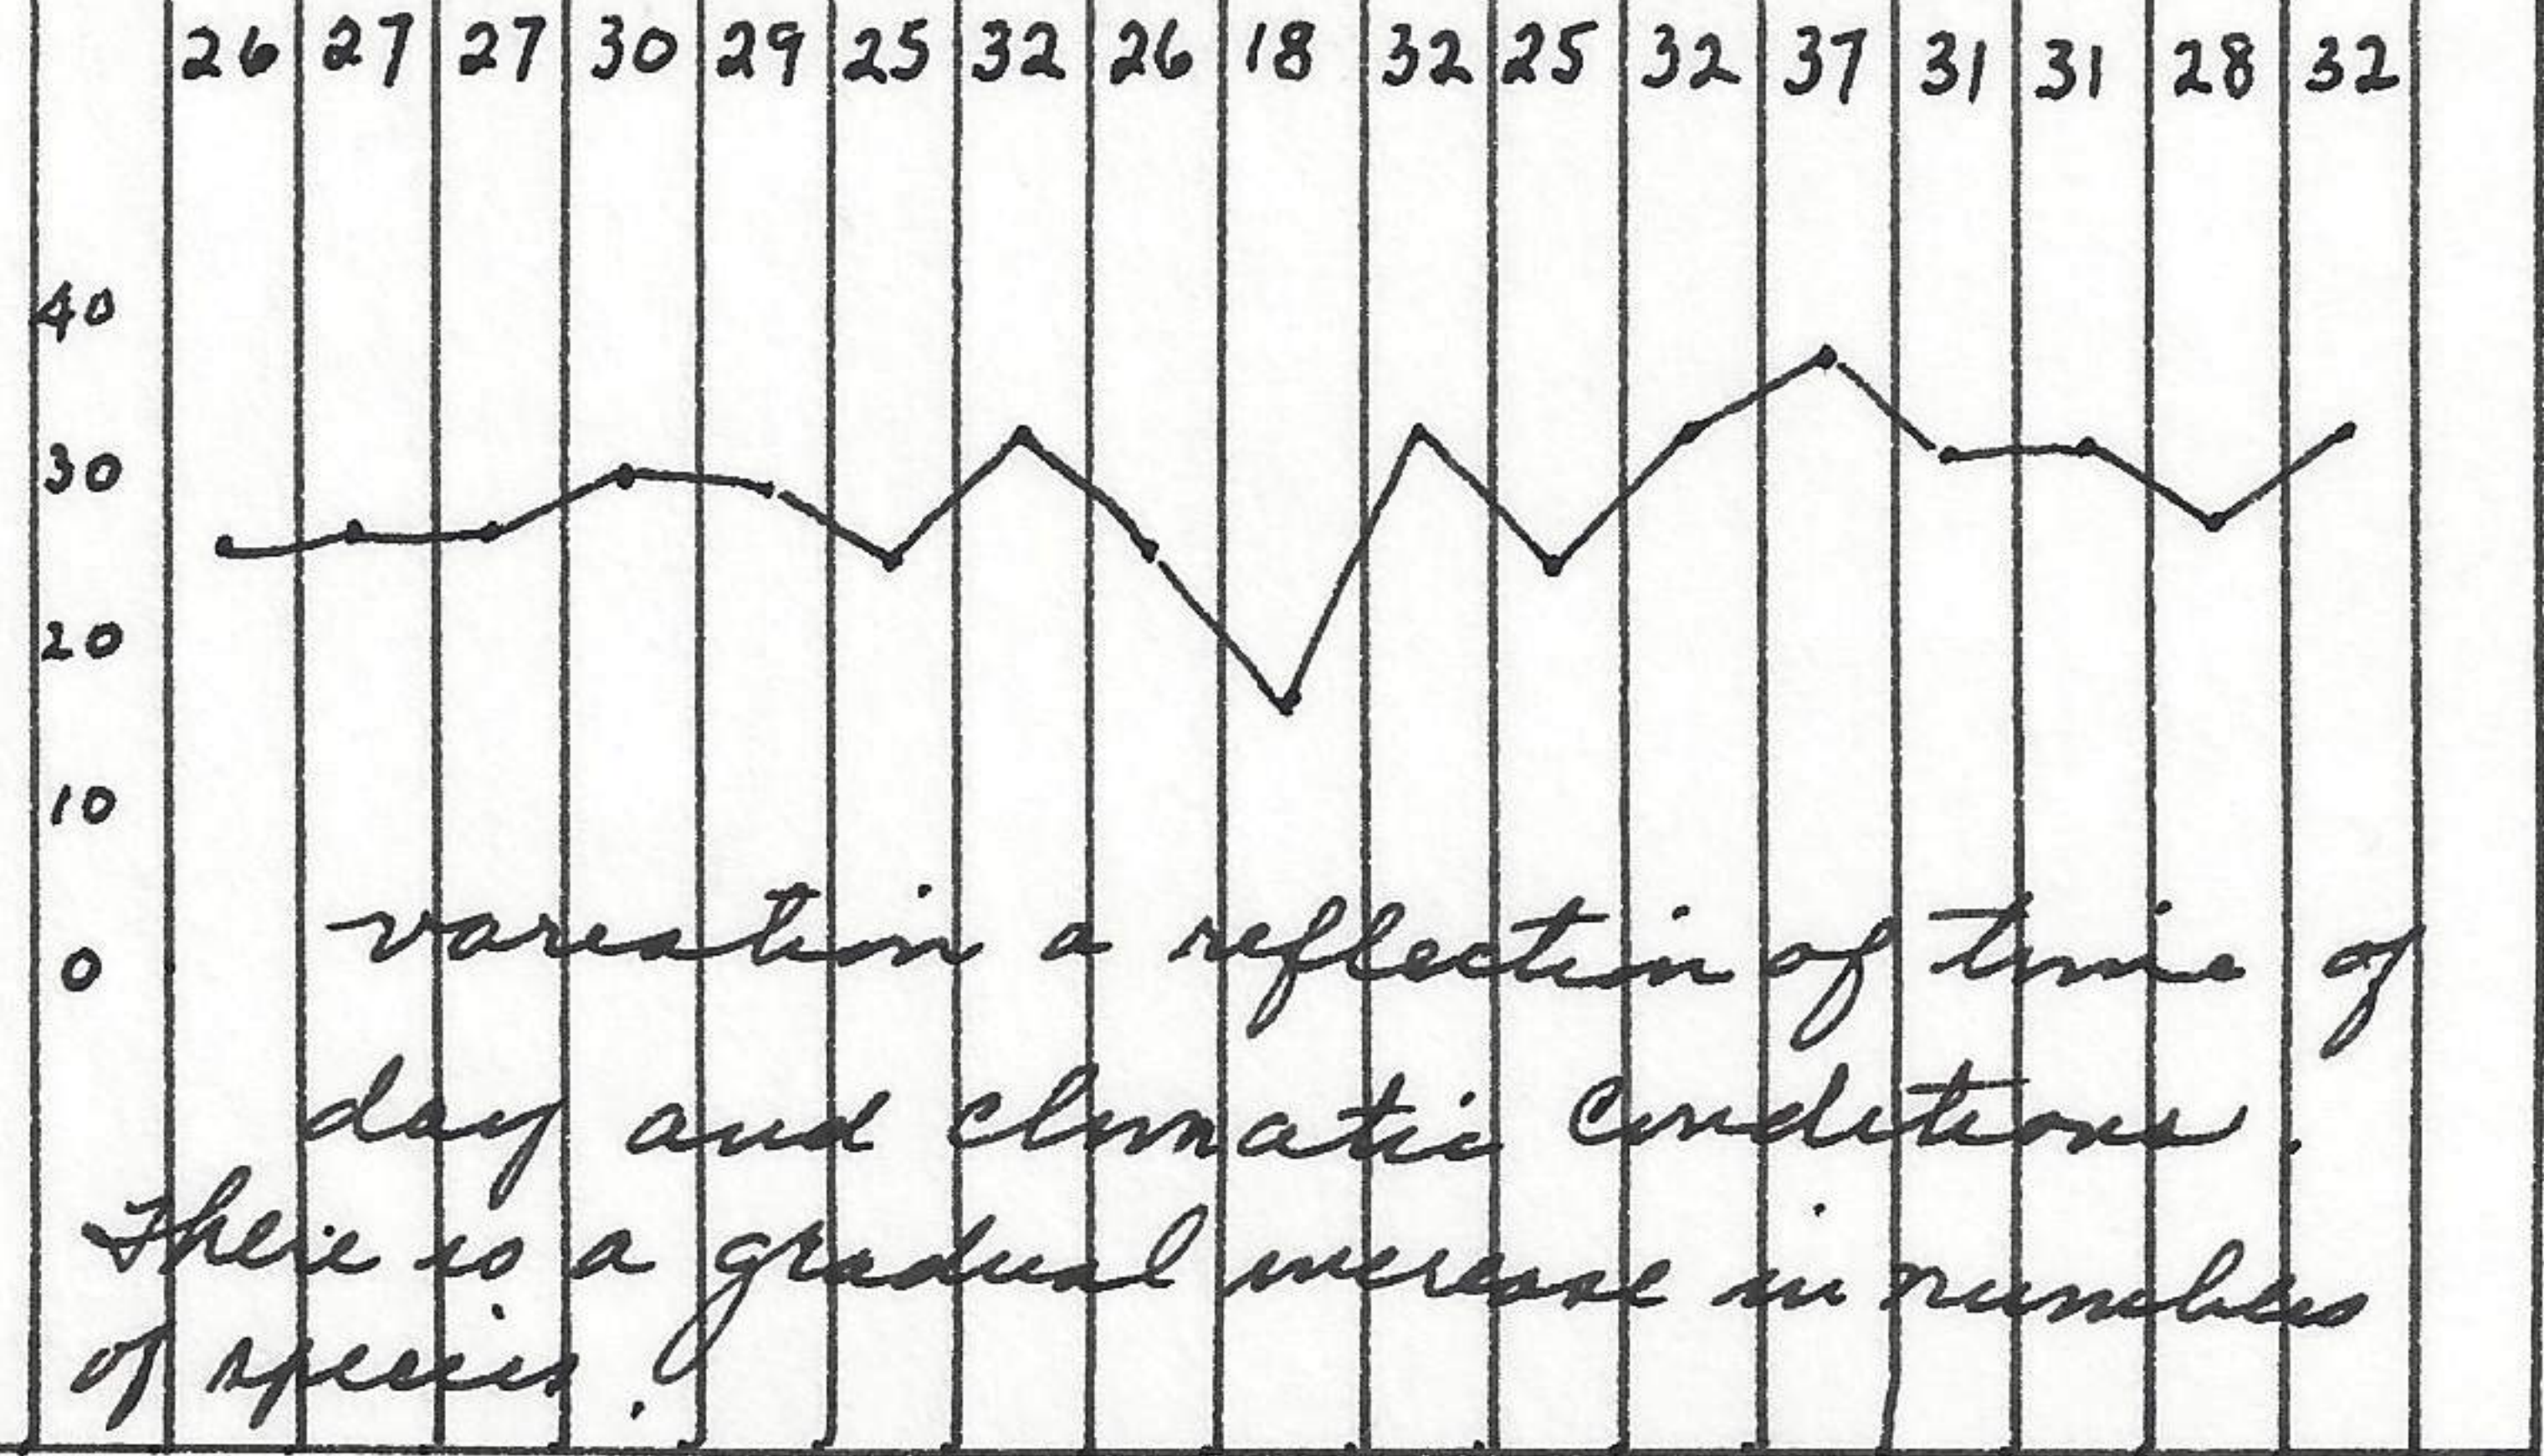 26 27 27 30 29 25 32 26 18 32 25 32 37 31 31 28 32
40
30
20
10
0
variation a reflection of time of
day and climatic conditions.
There is a gradual increase in numbers
of species.